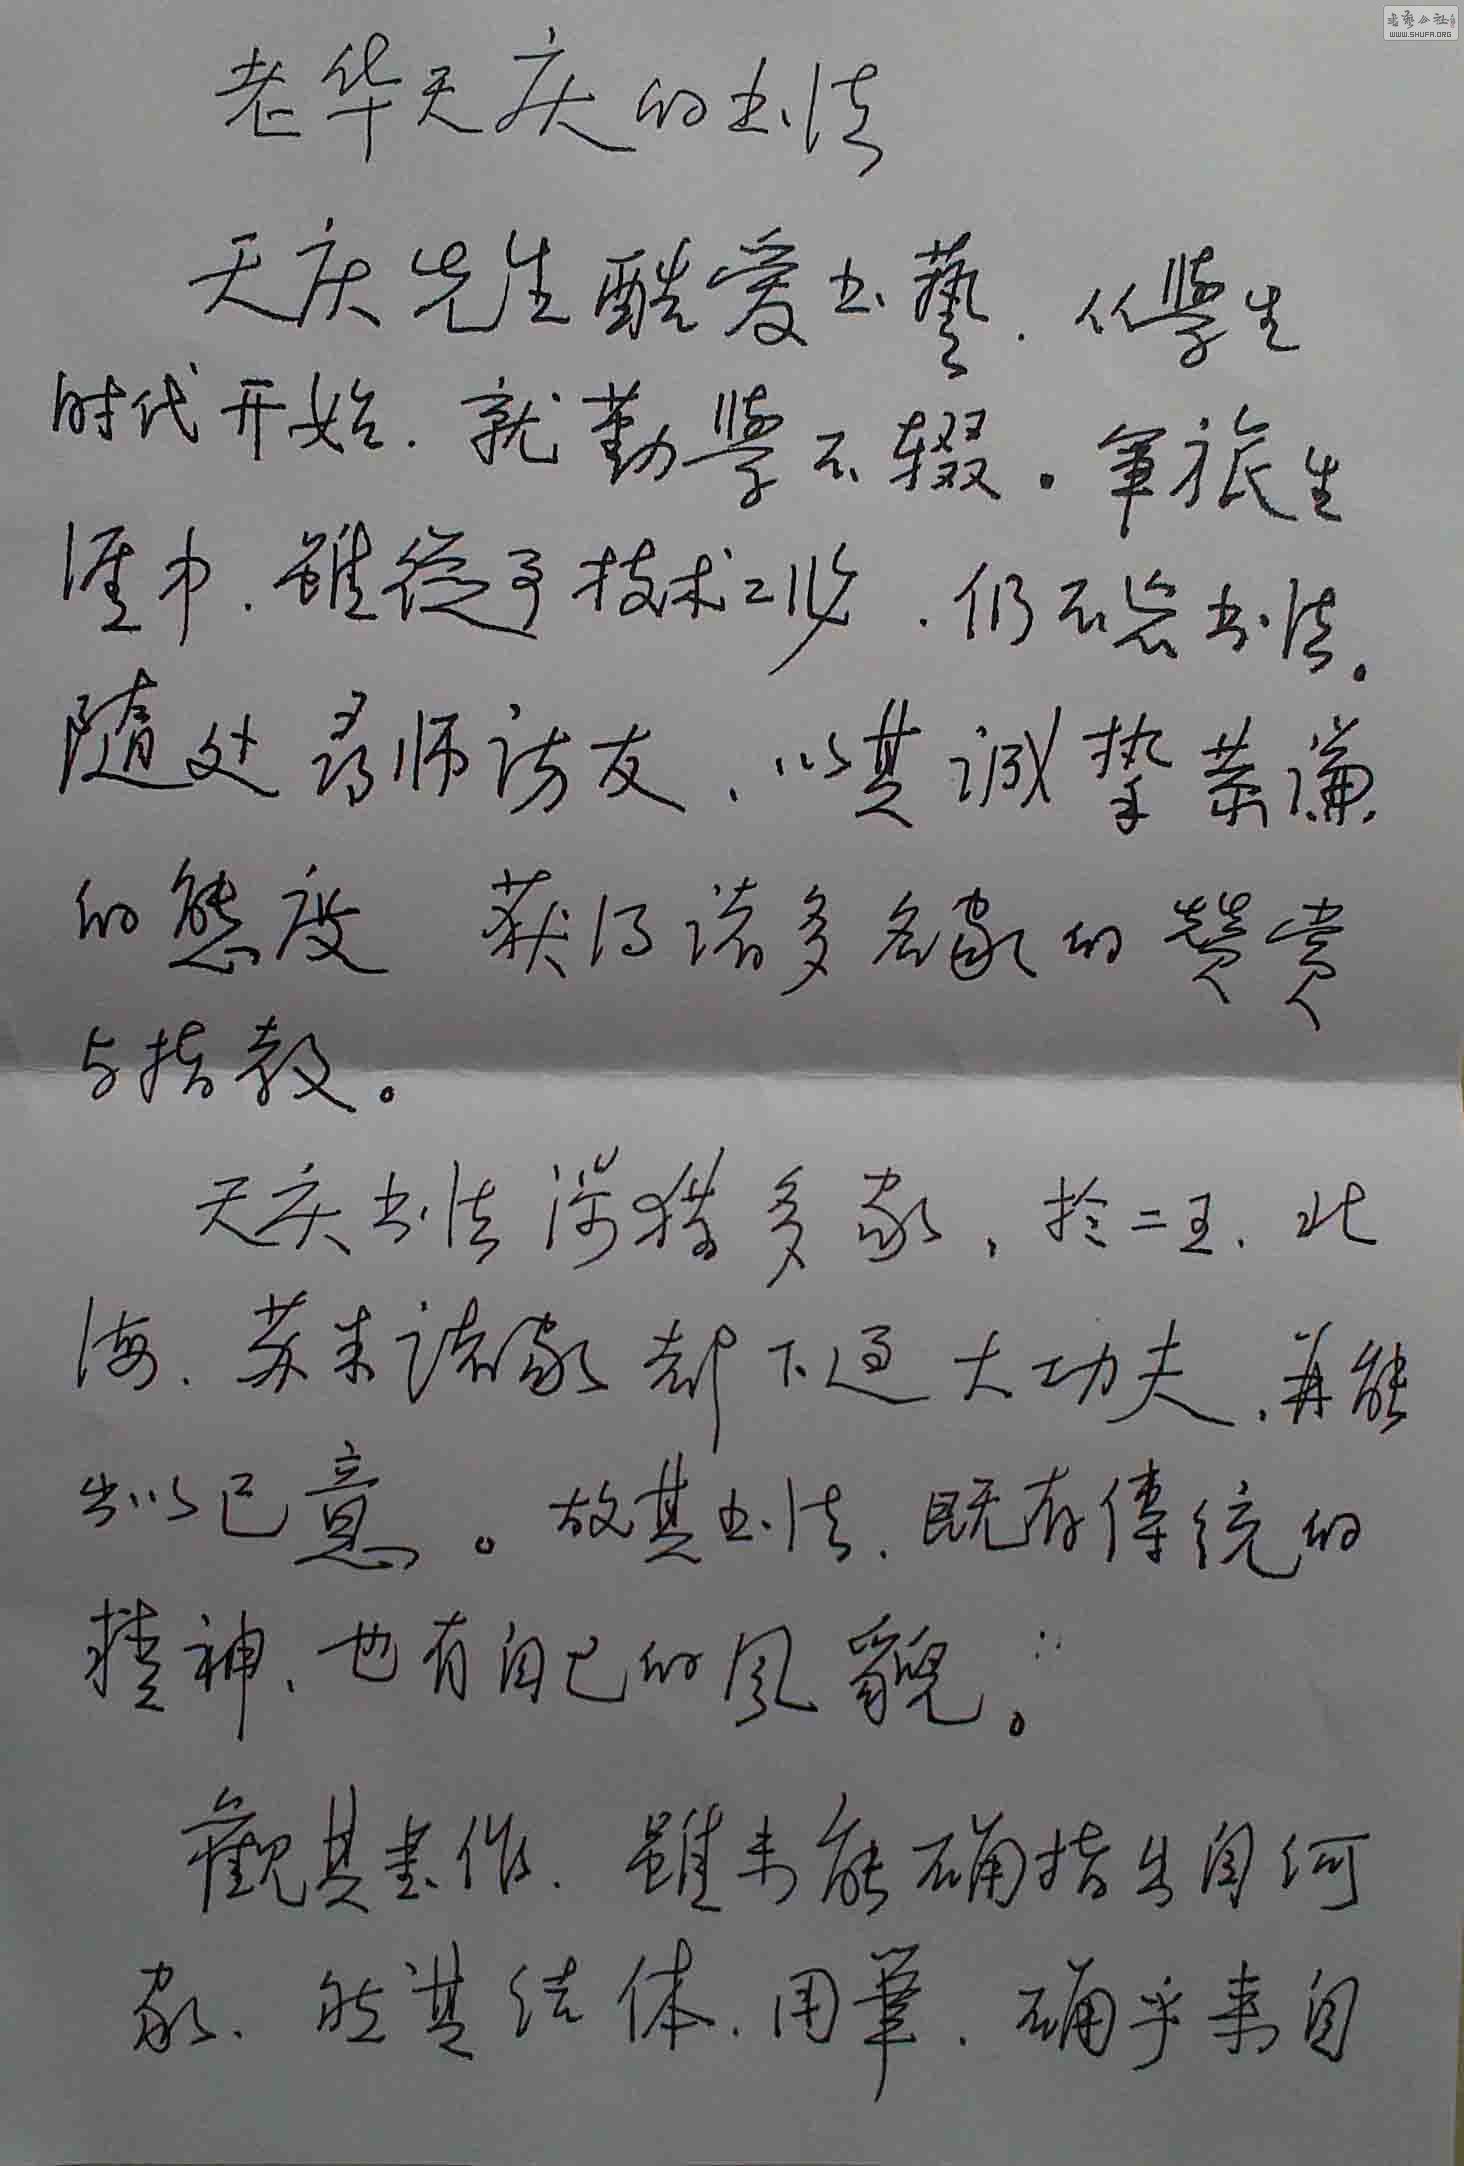 书艺公社
WWW.SHUFA.ORG
老华天庆的书法
天庆先生酷爱书藝. 从學生
时代开始. 就勤學不辍。军旅生
涯中. 雖從予技术工业. 仍不忘书法。
隨处尋师访友、以其诚挚恭谦
的態度 获得诸多名家的赞赏
与指教。
天庆书法涉獵多家, 於二王. 北
海. 苏米诸家都下过大功夫, 并能
出以己意。故其书法. 既存傳统的
精神、也有自己的风貌。
觀其書作. 雖未能确指出自何
家. 然其结体. 用筆. 确乎来自